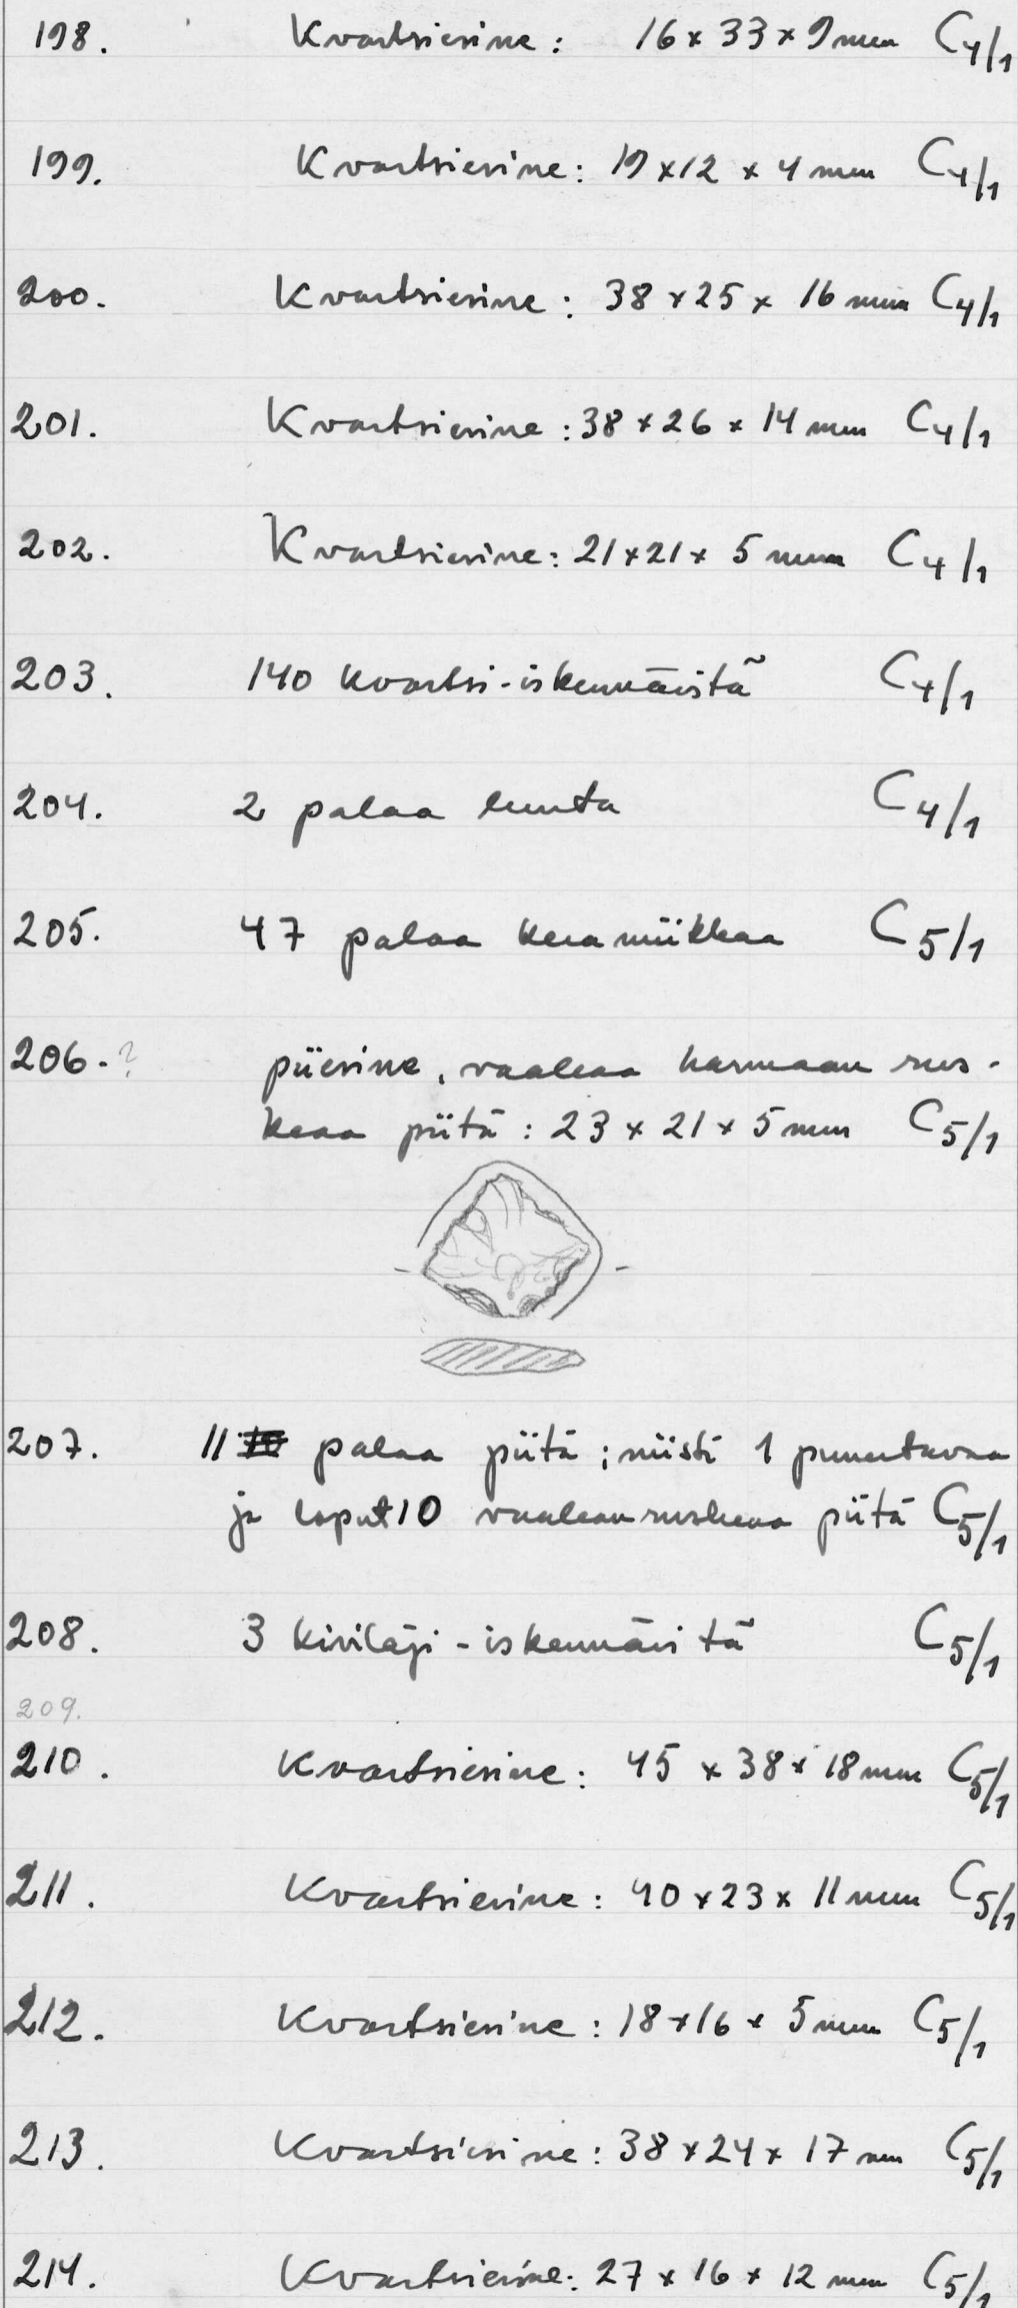 198. Kvartsiesine: 16 x 33 x 9 mm C4/1
199. Kvartsiesine: 19 x 12 x 4 mm C4/1
200. Kvartsiesine: 38 x 25 x 16 mm C4/1
201. Kvartsiesine: 38 x 26 x 14 mm C4/1
202. Kvartsiesine: 21 x 21 x 5 mm C4/1
203. 140 kvartsi-iskennäistä C4/1
204. 2 palaa luuta C4/1
205. 47 palaa keramiikkaa C5/1
206.? piiesine, vaaleaa harmaan rus-
keaa piitä: 23 x 21 x 5 mm C5/1
207. 11 palaa piitä; niistä 1 punertavaa
ja loput 10 vaaleanruskeaa piitä C5/1
208. 3 kivilaji-iskennäistä C5/1
209.
210. Kvartsiesine: 45 x 38 x 18 mm C5/1
211. Kvartsiesine: 40 x 23 x 11 mm C5/1
212. Kvartsiesine: 18 x 16 x 5 mm C5/1
213. Kvartsiesine: 38 x 24 x 17 mm C5/1
214. Kvartsiesine: 27 x 16 x 12 mm C5/1